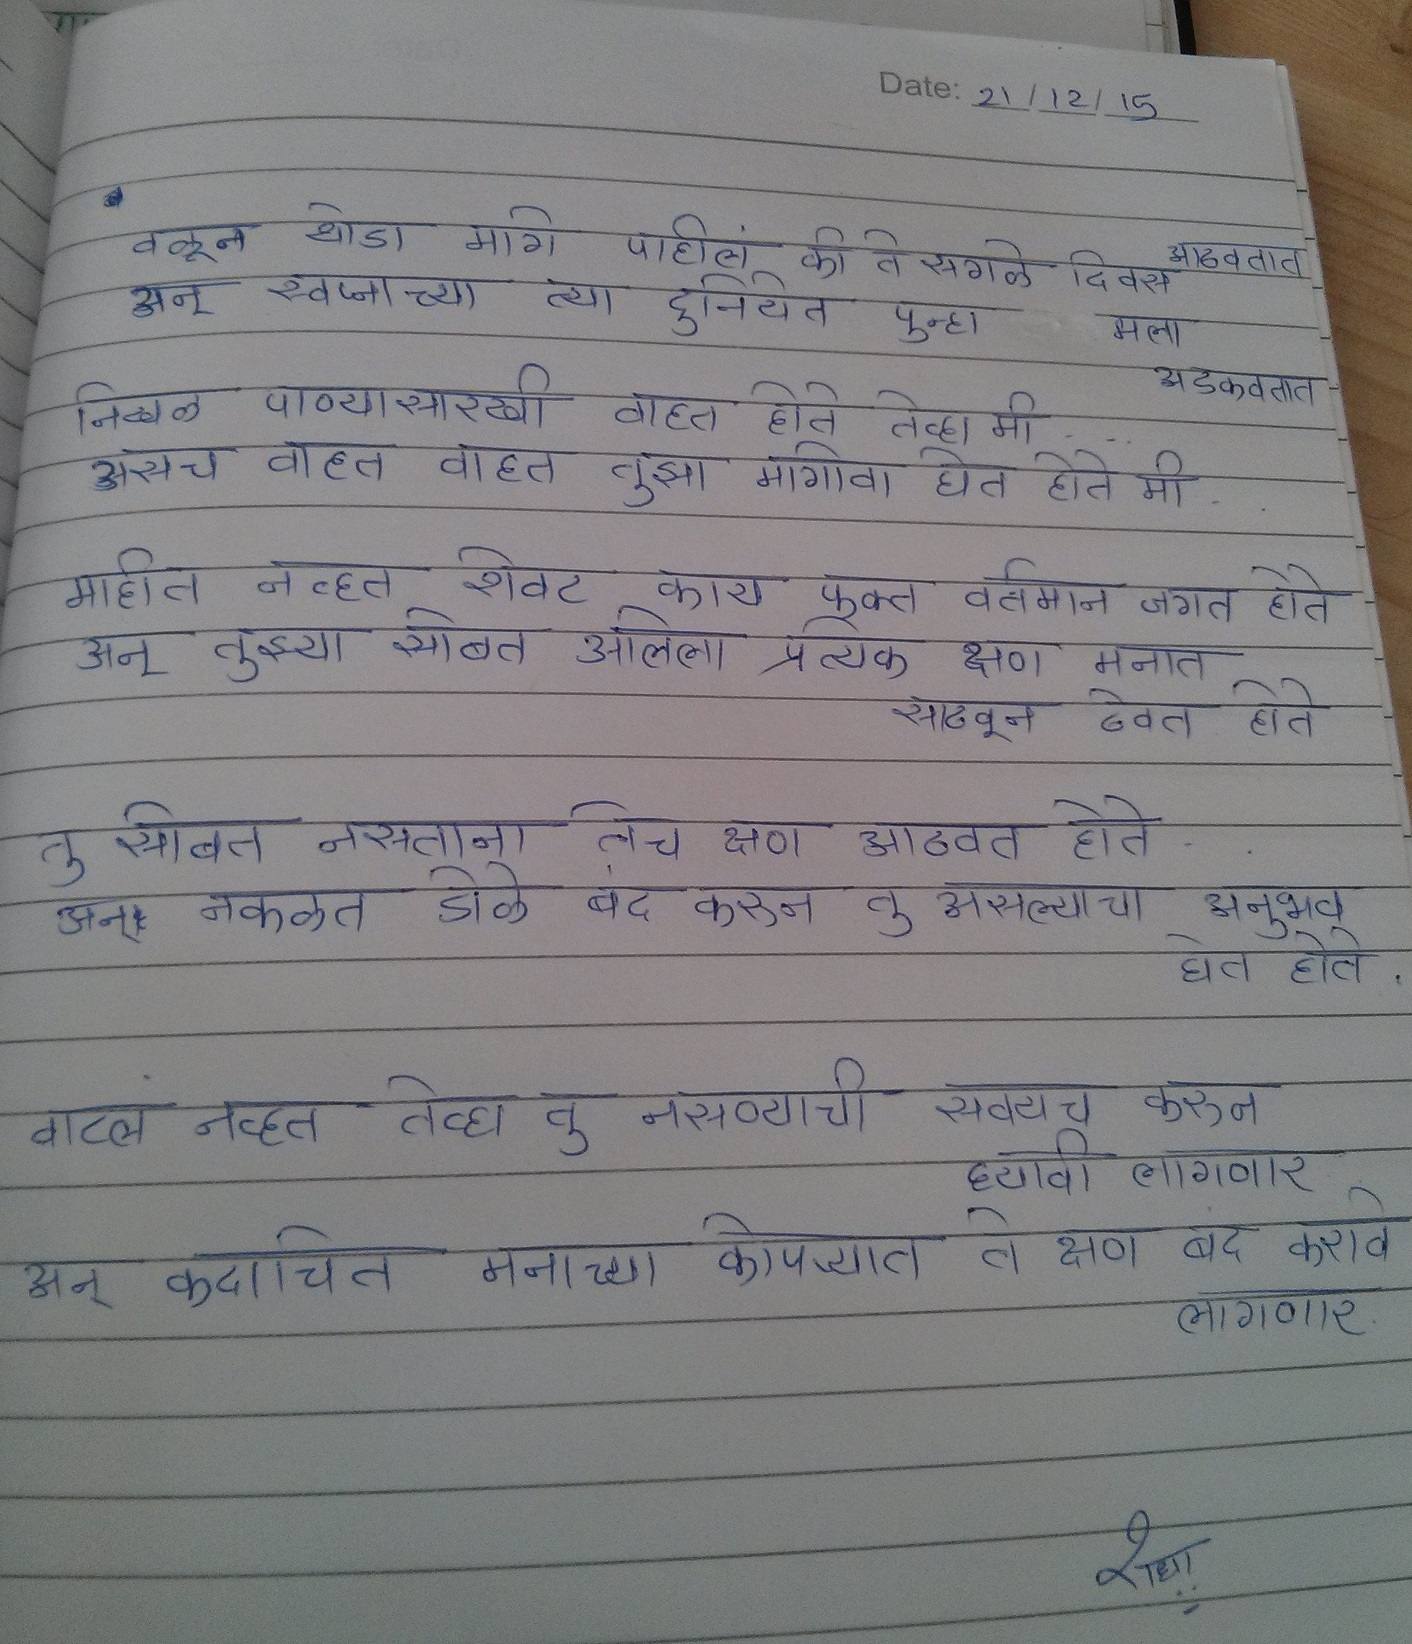 Date: 21/12/15
वळून थोडा मागे पाहीलं की ते सगळे दिवस आठवतात
अन् स्वप्नाच्या त्या दुनियेत पुन्हा मला
अडकवतात
निश्चल पाण्यासारखी वाहत होते तेव्हा मी ....
असच वाहत वाहत तुझा मागोवा घेत होते मी ..
माहीत नव्हत शेवट काय फक्त वर्तमान जगत होते
अन् तुझ्या सोबत आलेला प्रत्येक क्षण मनात
साठवून ठेवत होते
तु सोबत नसताना तेच क्षण आठवत होते ..
अन् नकळत डोळे बंद करुन तु असल्याचा अनुभव
घेत होते .
वाटलं नव्हत तेव्हा तु नसण्याची सवयच करुन
घ्यावी लागणार
अन् कदाचित मनाच्या कोपऱ्यात ते क्षण बंद करावे
लागणार.